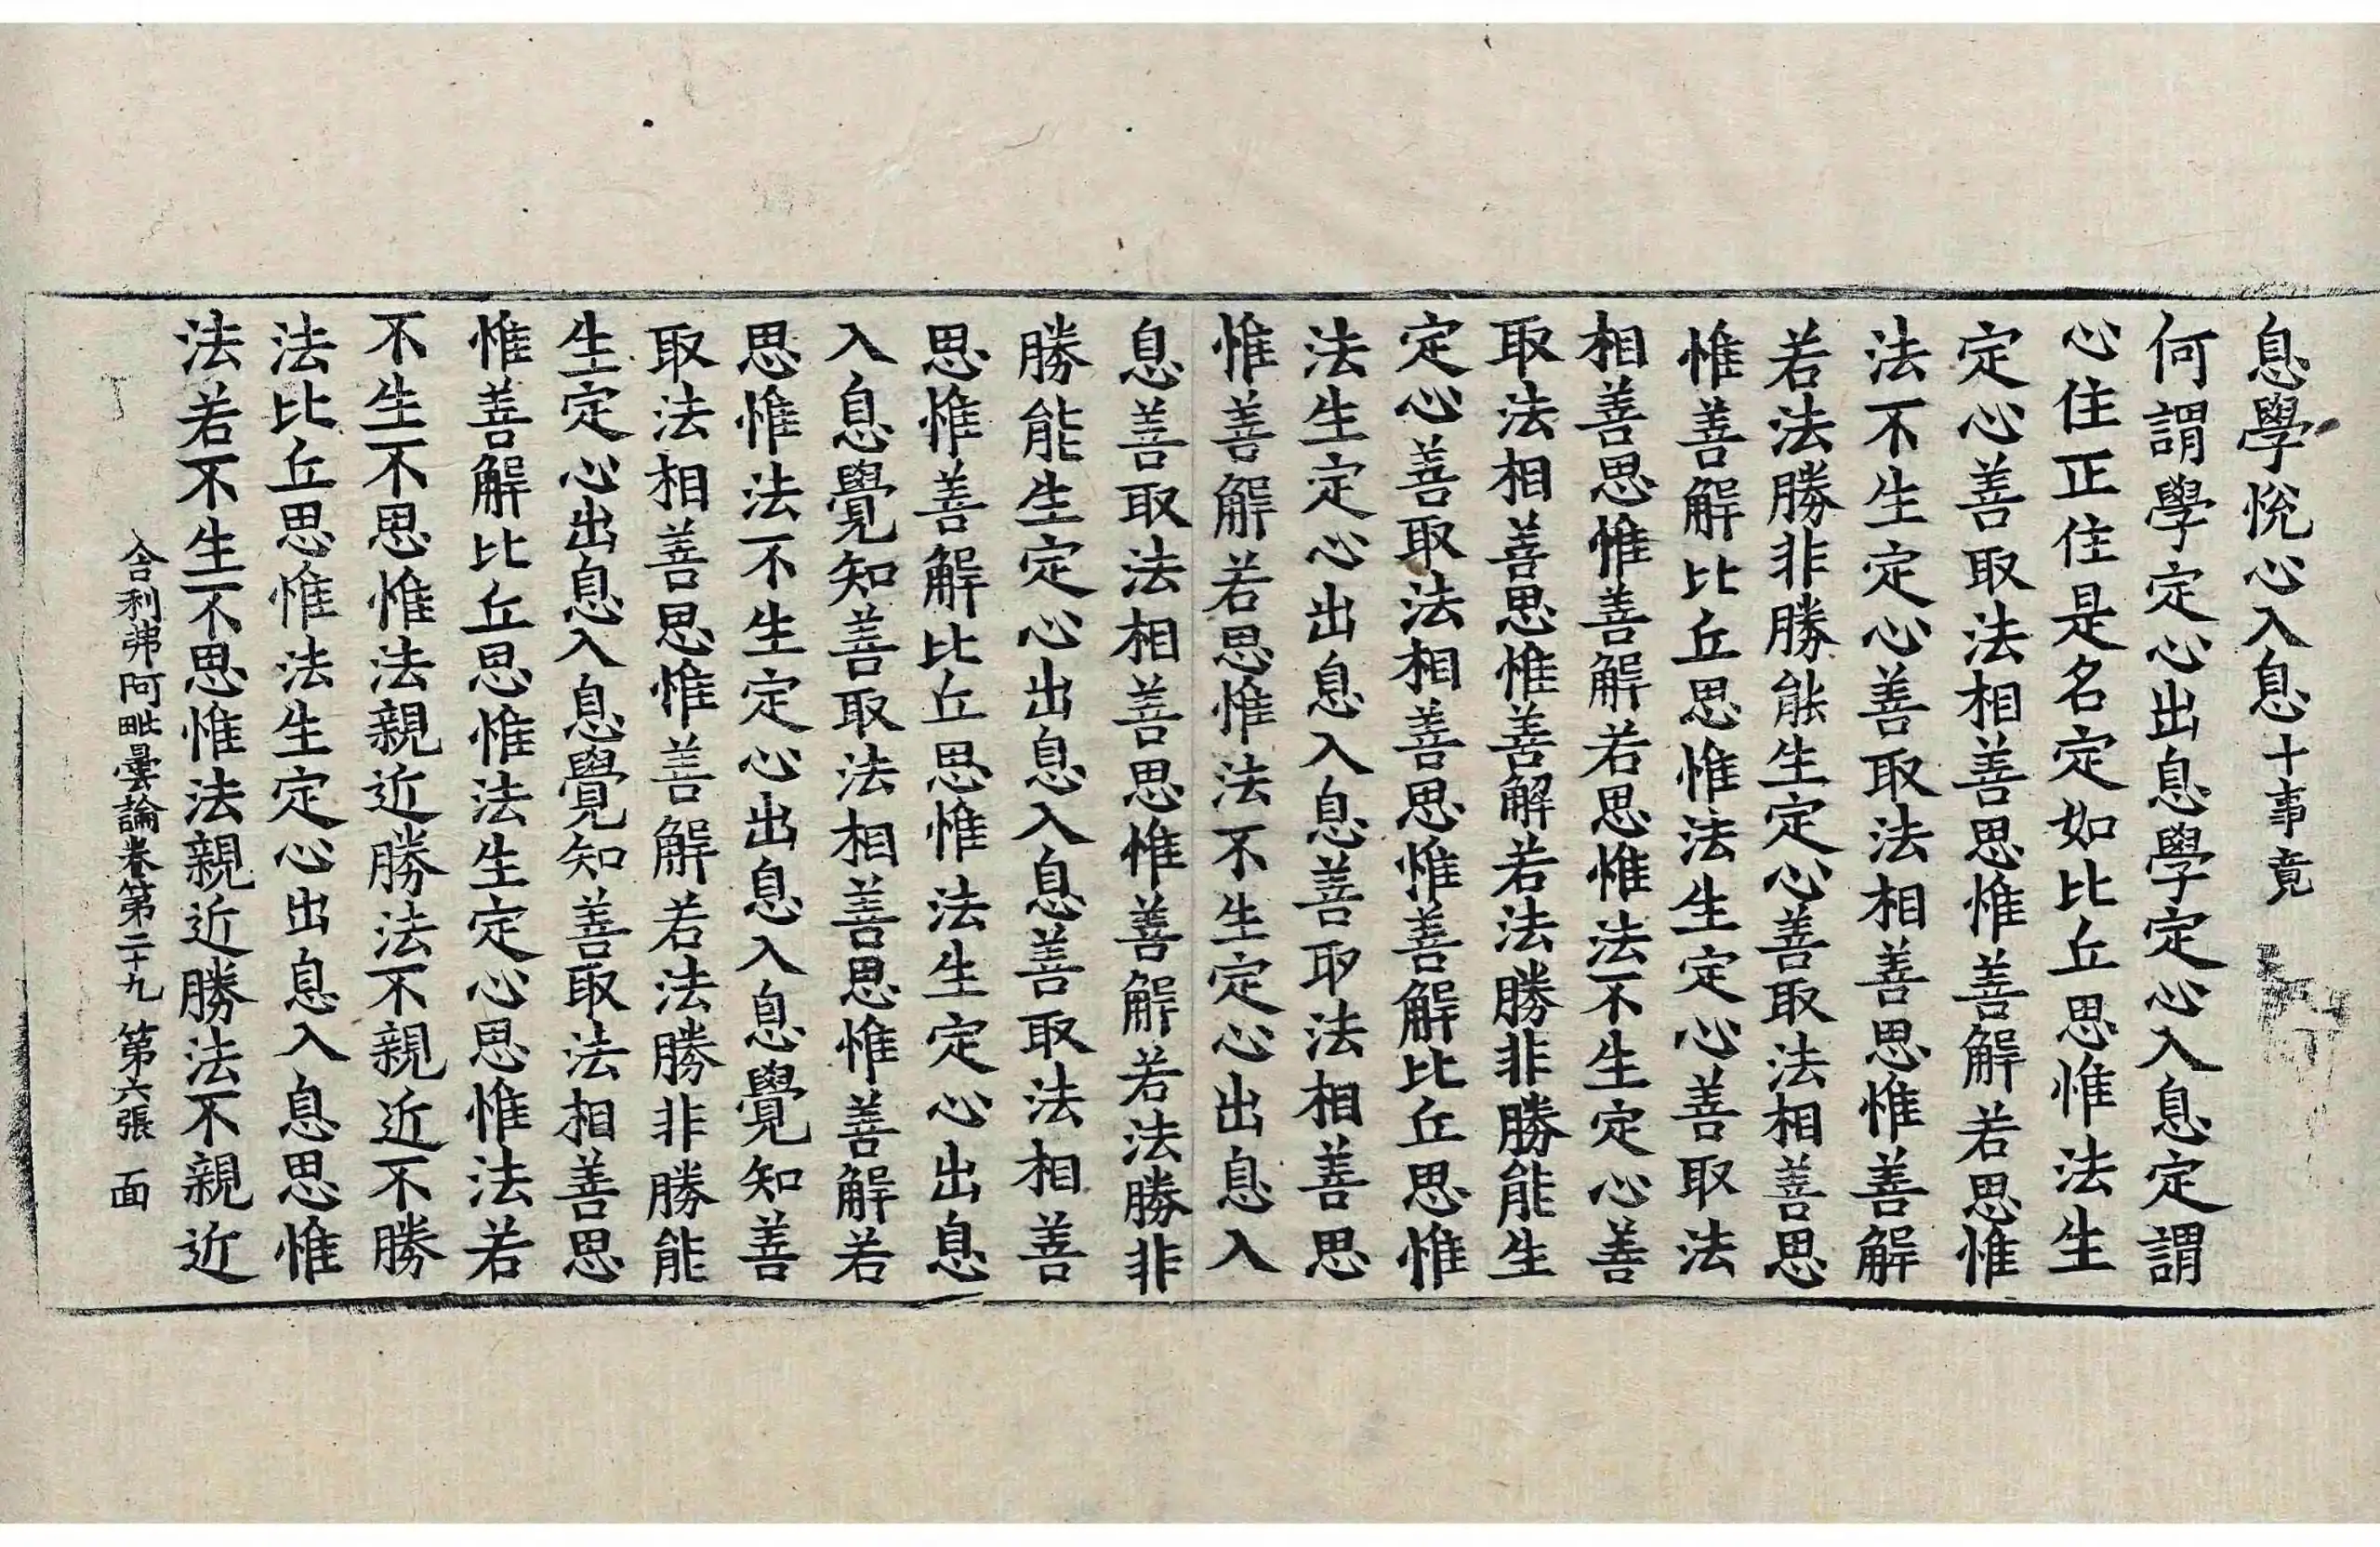 息學悅心入息十事竟
何謂學定心出息學定心入息定謂
心住正住是名定如比丘思惟法生
定心善取法相善思惟善解若思惟
法不生定心善取法相善思惟善解
若法勝非勝能生定心善取法相善思
惟善解比丘思惟法生定心善取法
相善思惟善解若思惟法不生定心善
取法相善思惟善解若法勝非勝能生
定心善取法相善思惟善解比丘思惟
法生定心出息入息善取法相善思
惟善解若思惟法不生定心出息入
息善取法相善思惟善解若法勝非
勝能生定心出息入息善取法相善
思惟善解比丘思惟法生定心出息
入息覺知善取法相善思惟善解若
思惟法不生定心出息入息覺知善
取法相善思惟善解若法勝非勝能
生定心出息入息覺知善取法相善思
惟善解比丘思惟法生定心思惟法若
不生不思惟法親近勝法不親近不勝
法比丘思惟法生定心出息入息思惟
法若不生不思惟法親近勝法不親近
舍利弗阿毗曇論卷第二十九 第六張 面